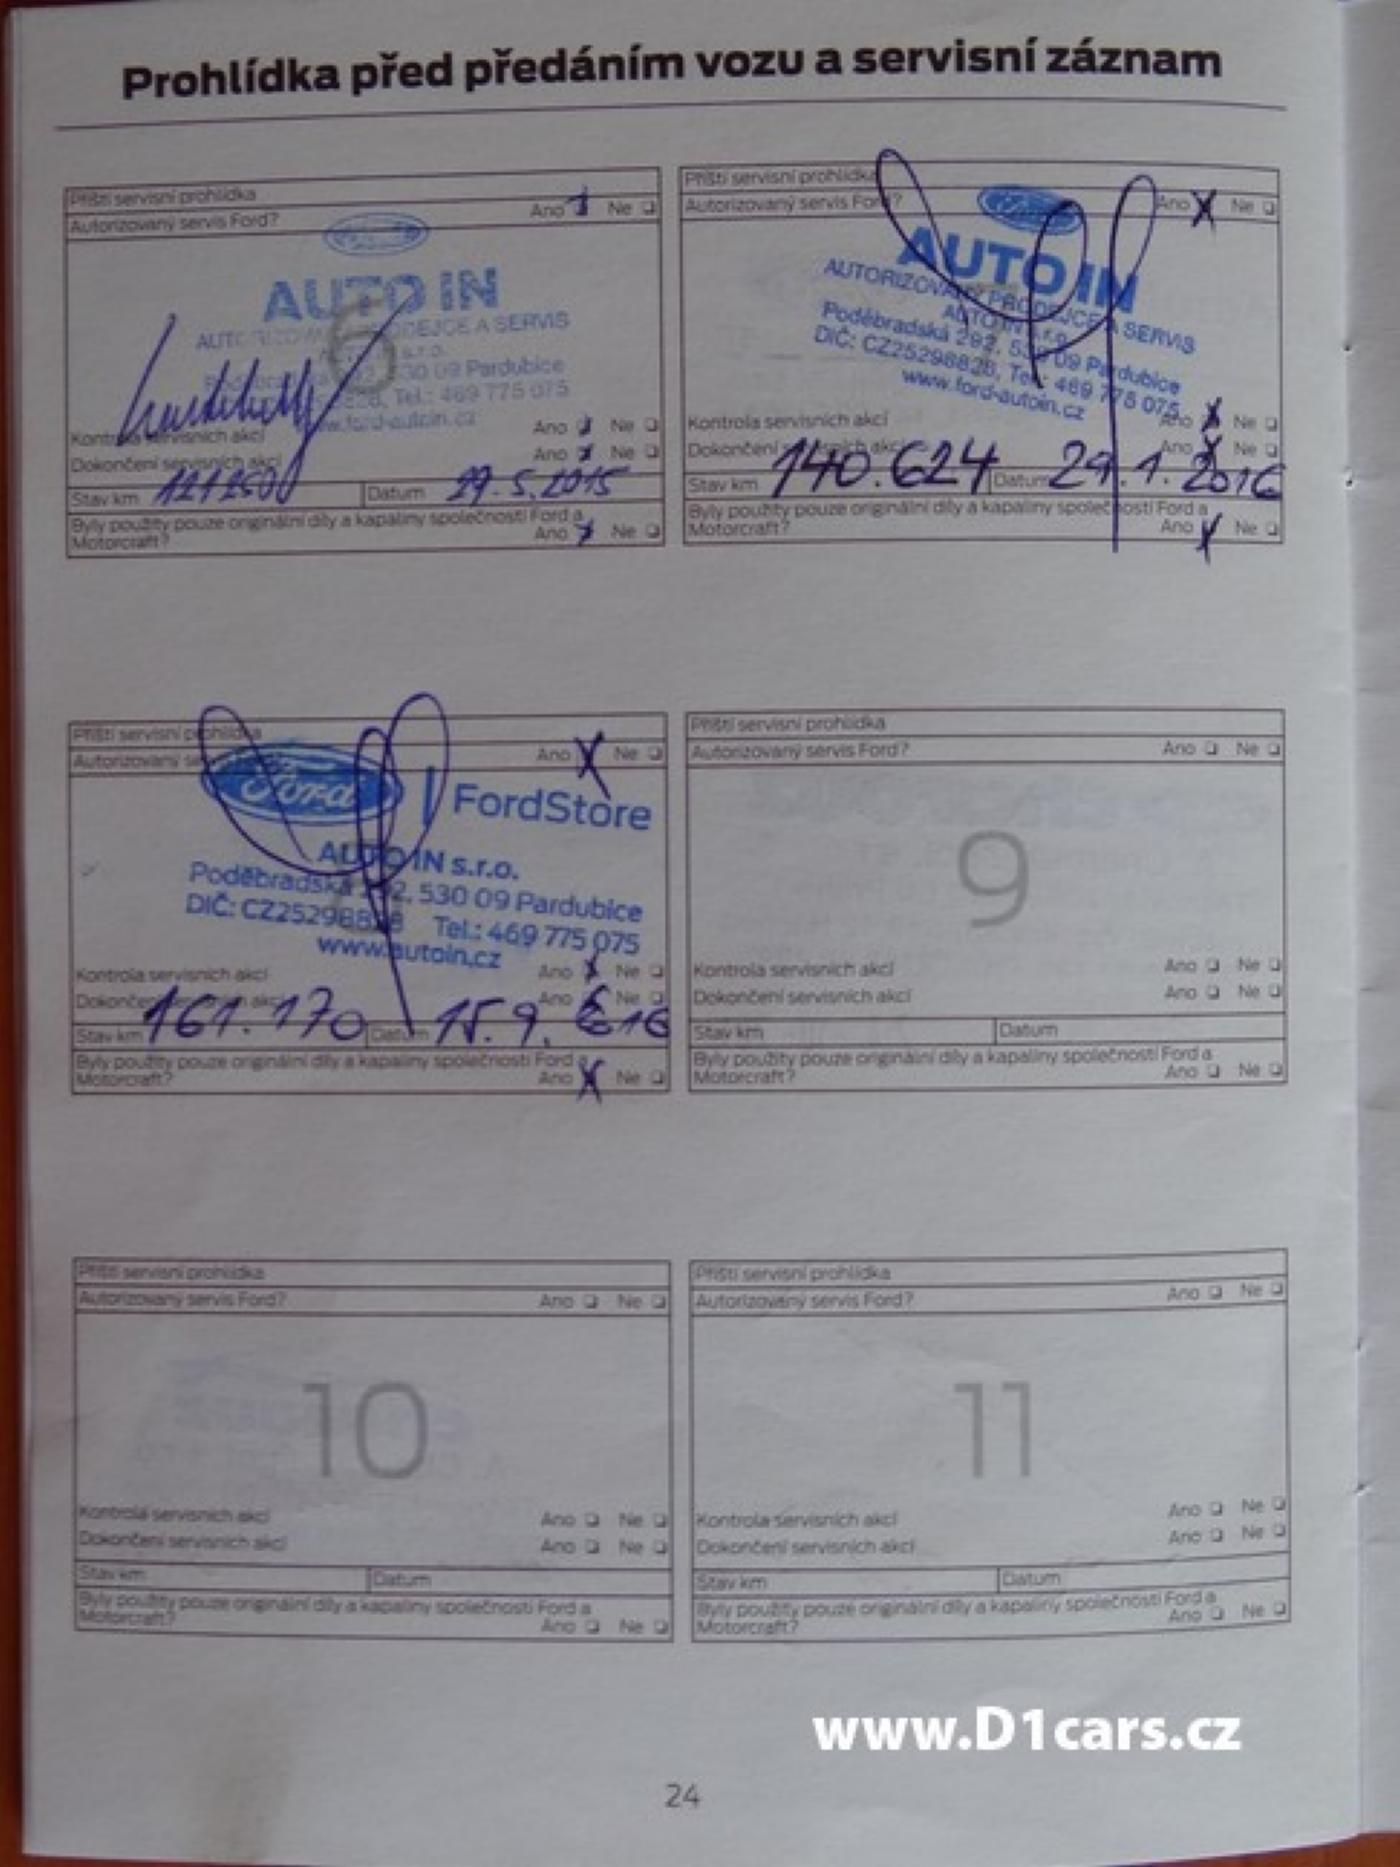 Prohlídka před předáním vozu a servisní záznam
Příští servisní prohlídka
Autorizovaný servis Ford? Ano Ne
Ford
AUTO IN
AUTORIZOVANÝ PRODEJCE A SERVIS
s.r.o.
530 09 Pardubice
Tel.: 469 775 075
www.ford-autoin.cz
6
Kontrola servisních akcí Ano Ne
Dokončení servisních akcí Ano Ne
Stav km 121250 Datum 29.5.2015
Byly použity pouze originální díly a kapaliny společnosti Ford a
Motorcraft? Ano Ne
Příští servisní prohlídka
Autorizovaný servis Ford? Ano X Ne
Ford
AUTO IN
AUTORIZOVANÝ PRODEJCE A SERVIS
AUTO IN s.r.o.
Poděbradská 292, 530 09 Pardubice
DIČ: CZ25298828, Tel.: 469 775 075
www.ford-autoin.cz
Kontrola servisních akcí Ano X Ne
Dokončení servisních akcí Ano X Ne
Stav km 140.624 Datum 29.1.2016
Byly použity pouze originální díly a kapaliny společnosti Ford a
Motorcraft? Ano X Ne
Příští servisní prohlídka
Autorizovaný servis Ford? Ano X Ne
Ford FordStore
AUTO IN s.r.o.
Poděbradská 292, 530 09 Pardubice
DIČ: CZ25298828 Tel.: 469 775 075
www.autoin.cz
Kontrola servisních akcí Ano X Ne
Dokončení servisních akcí Ano X Ne
Stav km 161.170 Datum 15.9.
Byly použity pouze originální díly a kapaliny společnosti Ford a
Motorcraft? Ano X Ne
Příští servisní prohlídka
Autorizovaný servis Ford? Ano Ne
9
Kontrola servisních akcí Ano Ne
Dokončení servisních akcí Ano Ne
Stav km Datum
Byly použity pouze originální díly a kapaliny společnosti Ford a
Motorcraft? Ano Ne
Příští servisní prohlídka
Autorizovaný servis Ford? Ano Ne
10
Kontrola servisních akcí Ano Ne
Dokončení servisních akcí Ano Ne
Stav km Datum
Byly použity pouze originální díly a kapaliny společnosti Ford a
Motorcraft? Ano Ne
Příští servisní prohlídka
Autorizovaný servis Ford? Ano Ne
11
Kontrola servisních akcí Ano Ne
Dokončení servisních akcí Ano Ne
Stav km Datum
Byly použity pouze originální díly a kapaliny společnosti Ford a
Motorcraft? Ano Ne
www.D1cars.cz
24